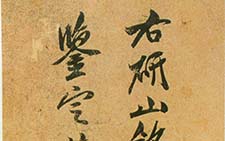 右研山銘
鑒定